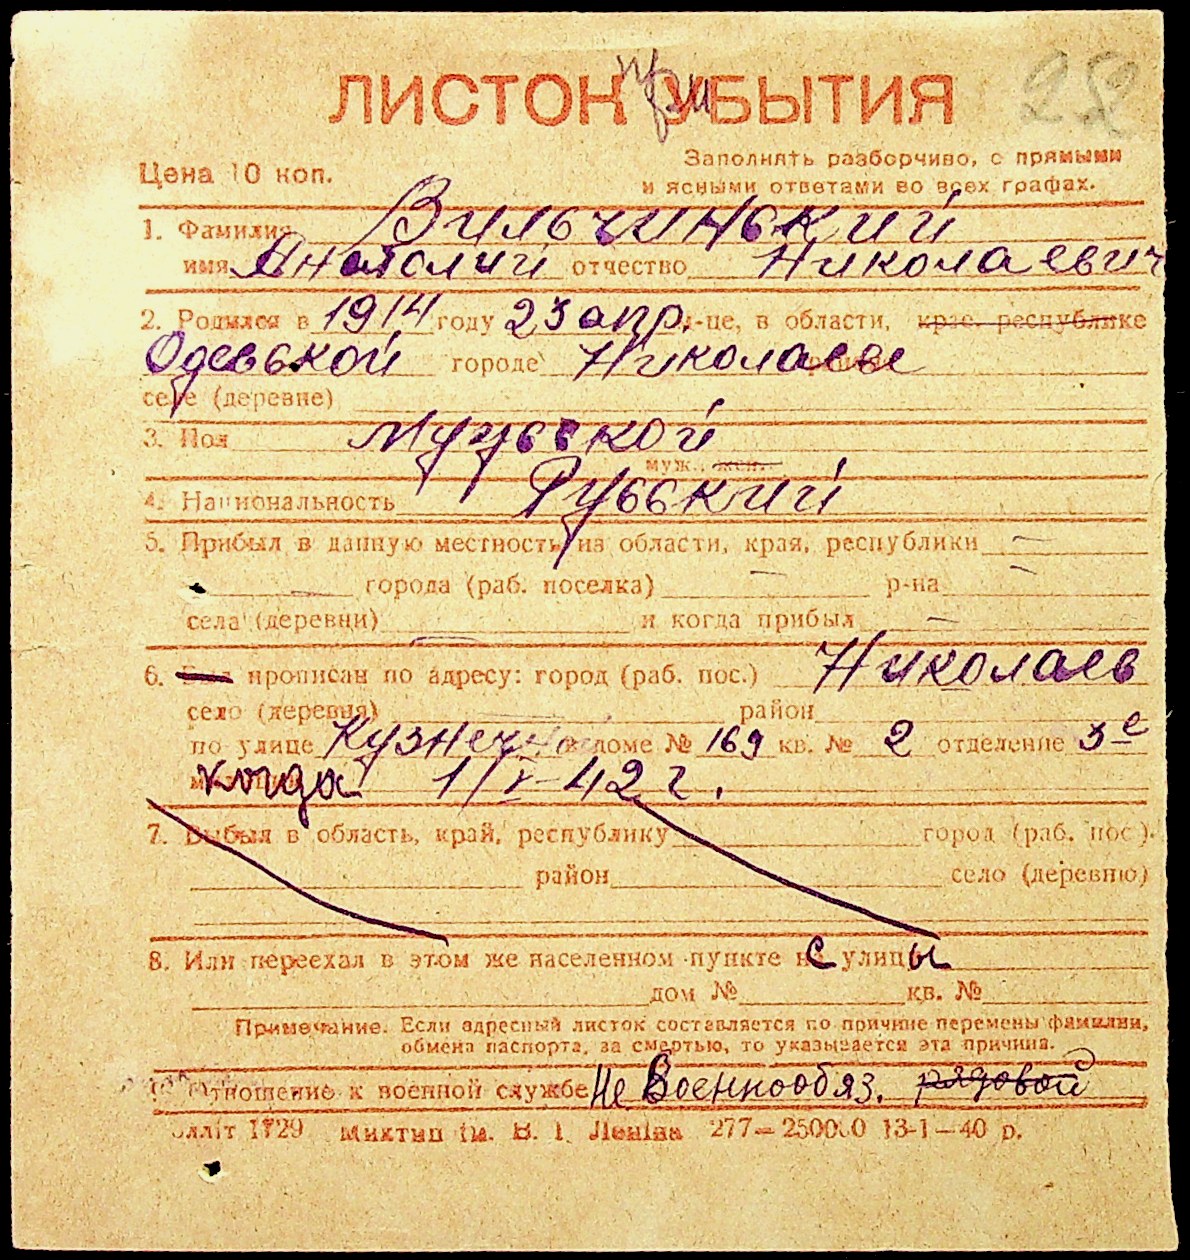 ЛИСТОК УБЫТИЯ
при
28
Цена 10 коп.
Заполнять разборчиво, с прямыми
и ясными ответами во всех графах.
1. Фамилия Вильчинский
имя Анатолий отчество Николаевич
2. Родился в 1914 году 23 апр. м-це, в области, крае, республике
Одесской городе Николаеве
селе (деревне)
3. Пол мужской
муж., жен.
4. Национальность Русский
5. Прибыл в данную местность из области, края, республики —
— города (раб. поселка) — р-на —
села (деревни) — и когда прибыл —
6. Был прописан по адресу: город (раб. пос.) Николаев
село (деревня) район
по улице Кузнечной в доме № 169 кв. № 2 отделение 3е
когда 1/V-42 г.
7. Выбыл в область, край, республику город (раб. пос.).
район село (деревню)
8. Или переехал в этом же населенном пункте с улицы
дом № кв. №
Примечание. Если адресный листок составляется по причине перемены фамилии,
обмена паспорта, за смертью, то указывается эта причина.
9. Отношение к военной службе Не Военнообяз. рядовой
Олліт 1729 Миктип ім. В. І. Леніна 277—250000 13-1—40 р.